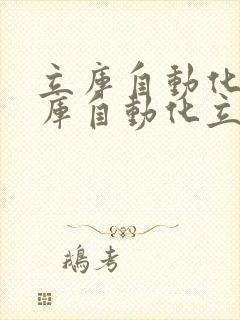 立庫自動化
庫自動化立
鵝考